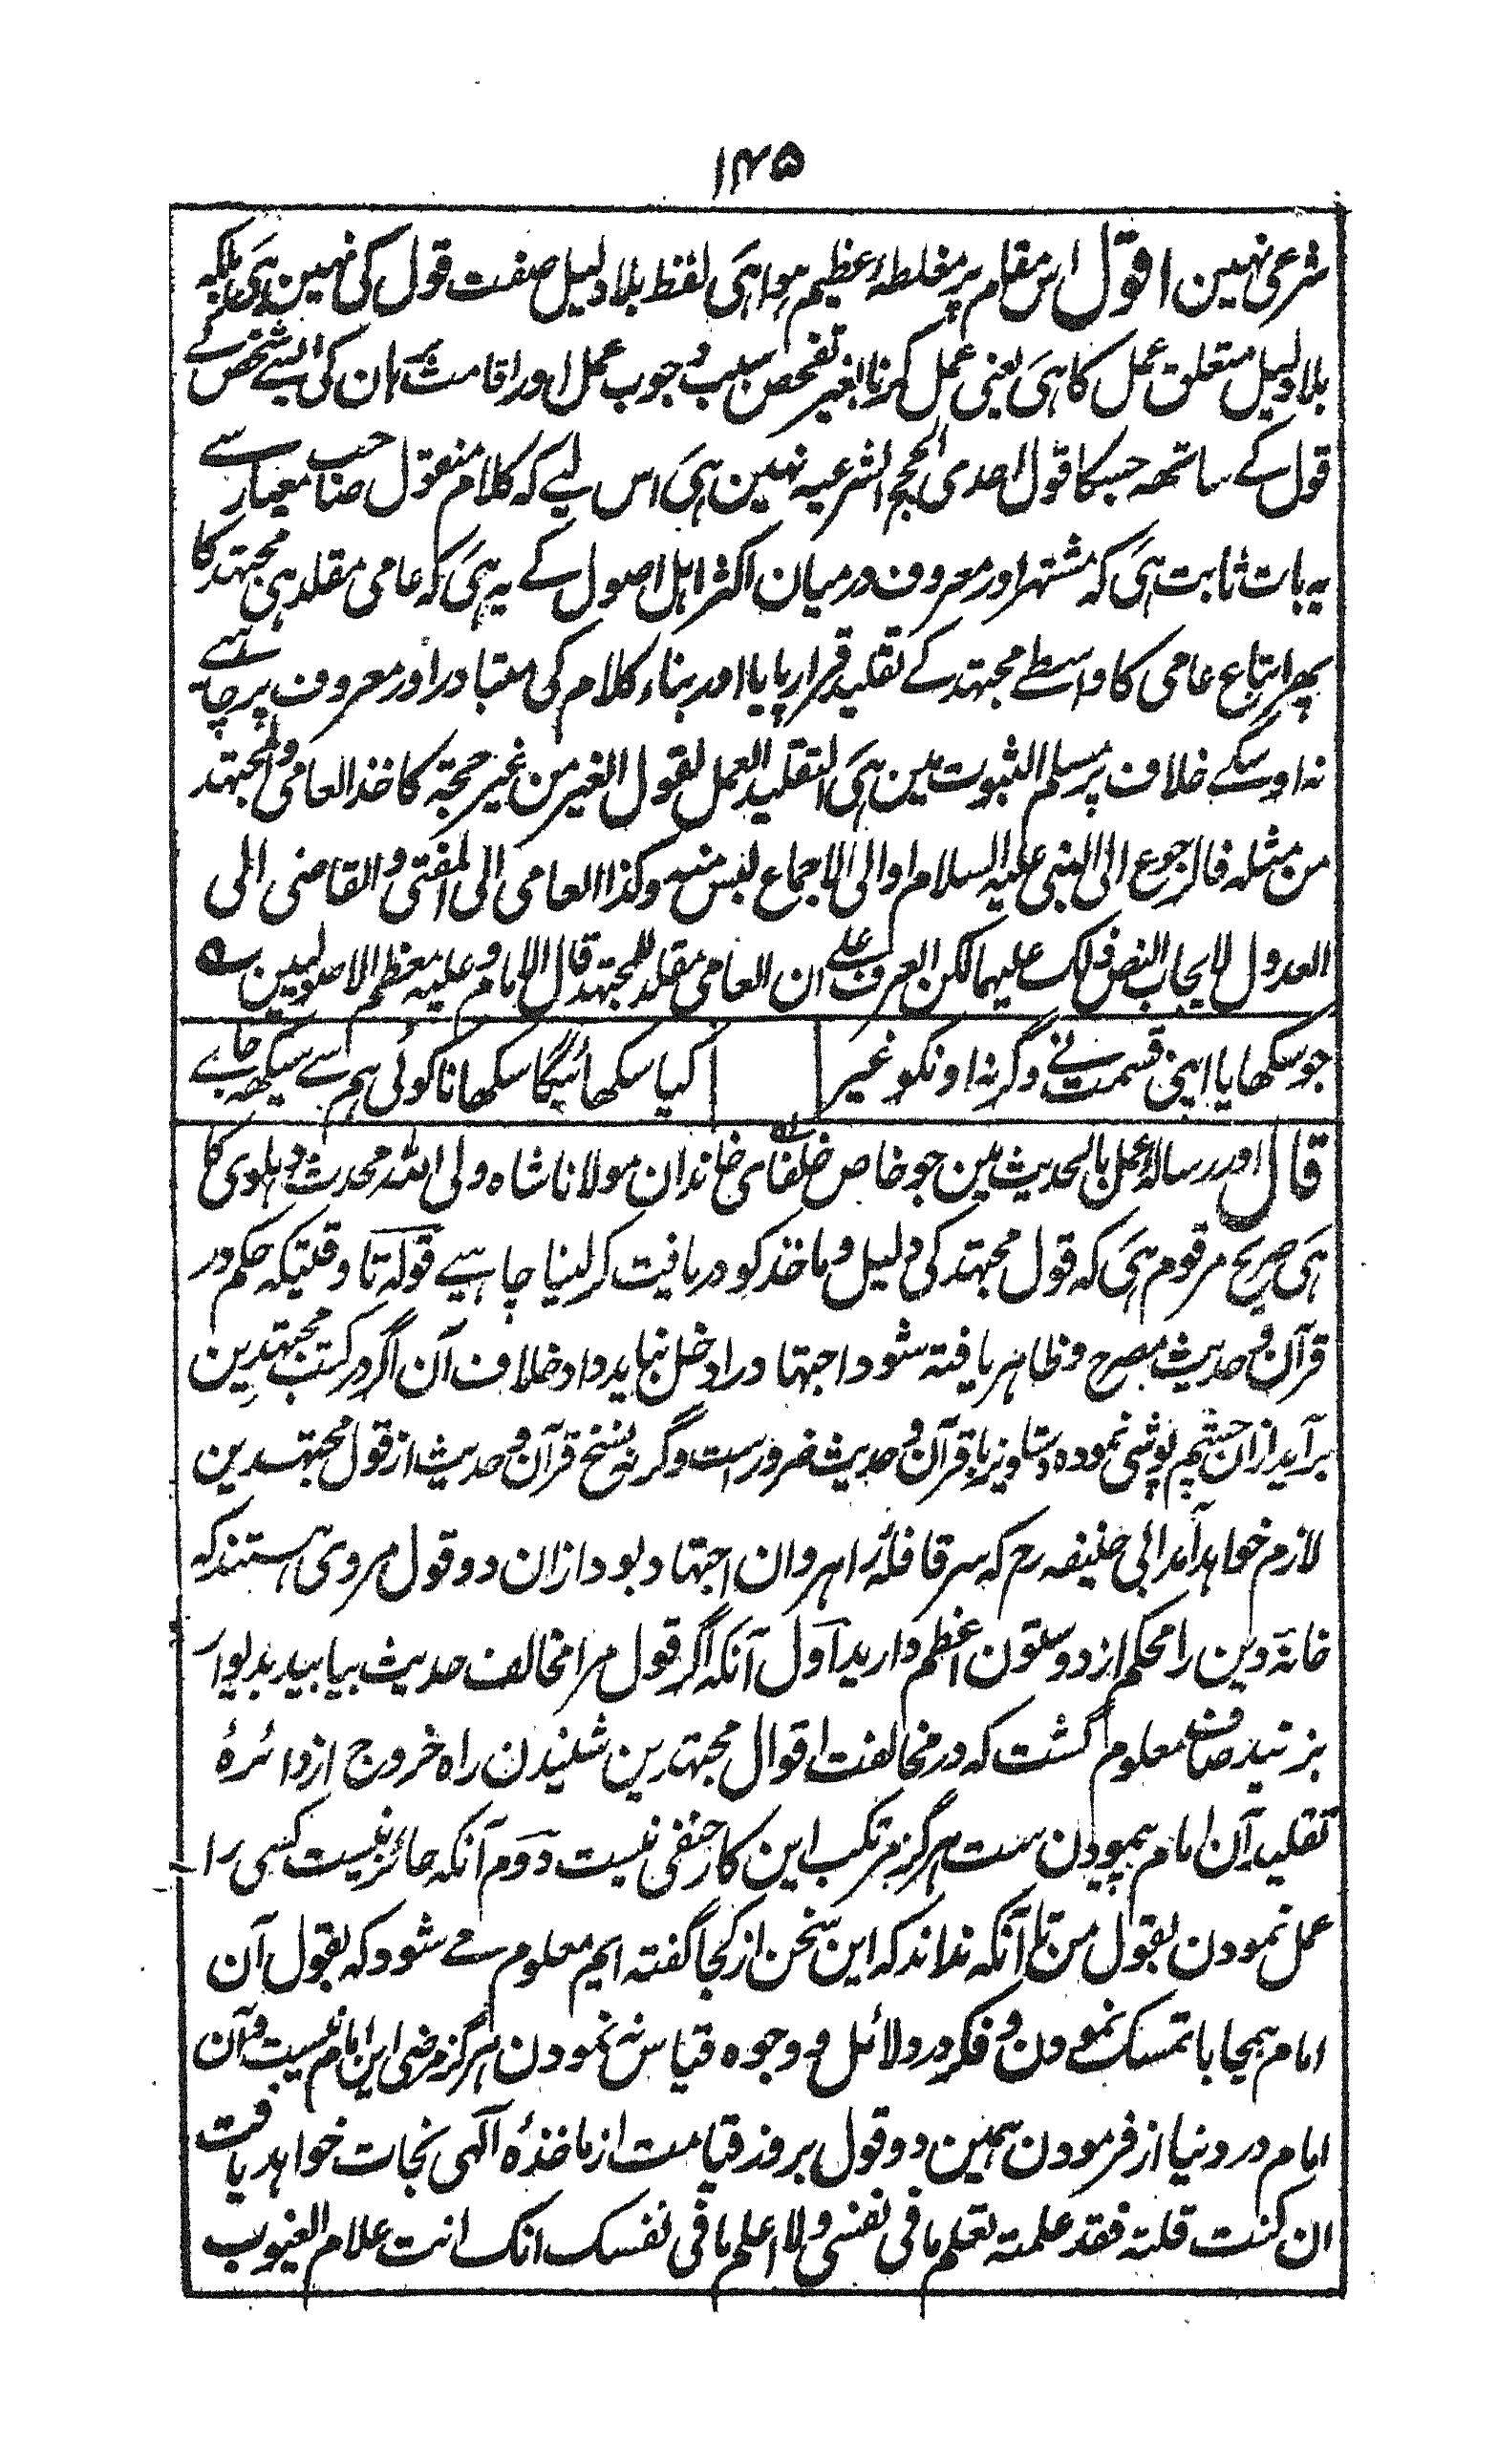 ۱۴۵
شرعی نہین اقول اس مقام پر مغلطہ عظیم ہوا ہی لفظ بلا دلیل صفت قول کی نہین ہی بلکہ
بلا دلیل متعلق عمل کا ہی یعنی عمل کرنا بغیر تفحص سبب وجوب عمل اور اقامت برہان کی ایسے شخص کے
قول کے ساتھہ جسکا قول احدی الحجج الشرعیہ نہین ہی اس لیے کہ کلام منقول صاحب معیار سے
یہ بات ثابت ہی کہ مشتہر اور معروف درمیان اکثر اہل اصول کے یہ ہی کہ عامی مقلد ہی مجتہد کا
پھر اتباع عامی کا واسطے مجتہد کے تقلید قرار پایا اور بناء کلام کی متبادر اور معروف پر چاہیے
نہ اوسکے خلاف پر مسلم الثبوت مین ہی التقلید العمل لقول الغیر من غیر حجة کاخذ العامی والمجتہد
من مثلہ فالرجوع الی النبی علیہ السلام او الی الاجماع لیس منہ وکذا العامی الی المفتی والقاضی الی
العدول لایجاب النص ذلک علیہما لکن العرف علی ان العامی مقلد للمجتہد قال الامام وعلیہ معظم الاصولیین ے
جو سکھایا اپنی قسمت نے وگرنہ اونکو غیر کیا سکھائیگا سکھانا کوئی ہم سے سیکھہ جاے
قال اور رسالہ عمل بالحدیث مین جو خاص خلفای خاندان مولانا شاہ ولی اللہ محدث دہلوی کا
ہی صریح مرقوم ہی کہ قول مجتہد کی دلیل و ماخذ کو دریافت کر لینا چاہیے قولہ تا وقتیکہ حکم در
قرآن و حدیث مصرح و ظاہر یافتہ شود اجتہاد را دخل نباید داد خلاف آن اگر در کتب مجتہدین
برآید ازان چشم پوشی نمودہ دستاویز با قرآن و حدیث ضرورست وگرنہ نسخ قرآن و حدیث از قول مجتہدین
لازم خواہد آمد ابی حنیفہ رح کہ سر قافلۂ راہروان اجتہاد بود ازان دو قول مروی ہستند کہ
خانۂ دین را محکم از دو ستون اعظم دارید اول آنکہ اگر قول مرا مخالف حدیث بیابید بدیوار
بزنید صاف معلوم گشت کہ در مخالفت اقوال مجتہدین شنیدن راہ خروج از دائرۂ
تقلید آن امام پیمودن ست ہرگز مرتکب این کار حنفی نیست دوم آنکہ جائز نیست کسی را
عمل نمودن بقول من تا آنکہ نداند کہ این سخن از کجا گفتہ ایم معلوم مے شود کہ بقول آن
امام بیجابا تمسک نمودن و فکر در دلائل و وجوہ قیاس نہ نمودن ہرگز مرضی این امام نیست و آن
امام در دنیا از فرمودن ہمین دو قول بروز قیامت از ماخذۂ الہی نجات خواہد یافت
ان کنت قلتہ فقد علمتہ تعلم ما فی نفسی ولا اعلم ما فی نفسک انک انت علام الغیوب